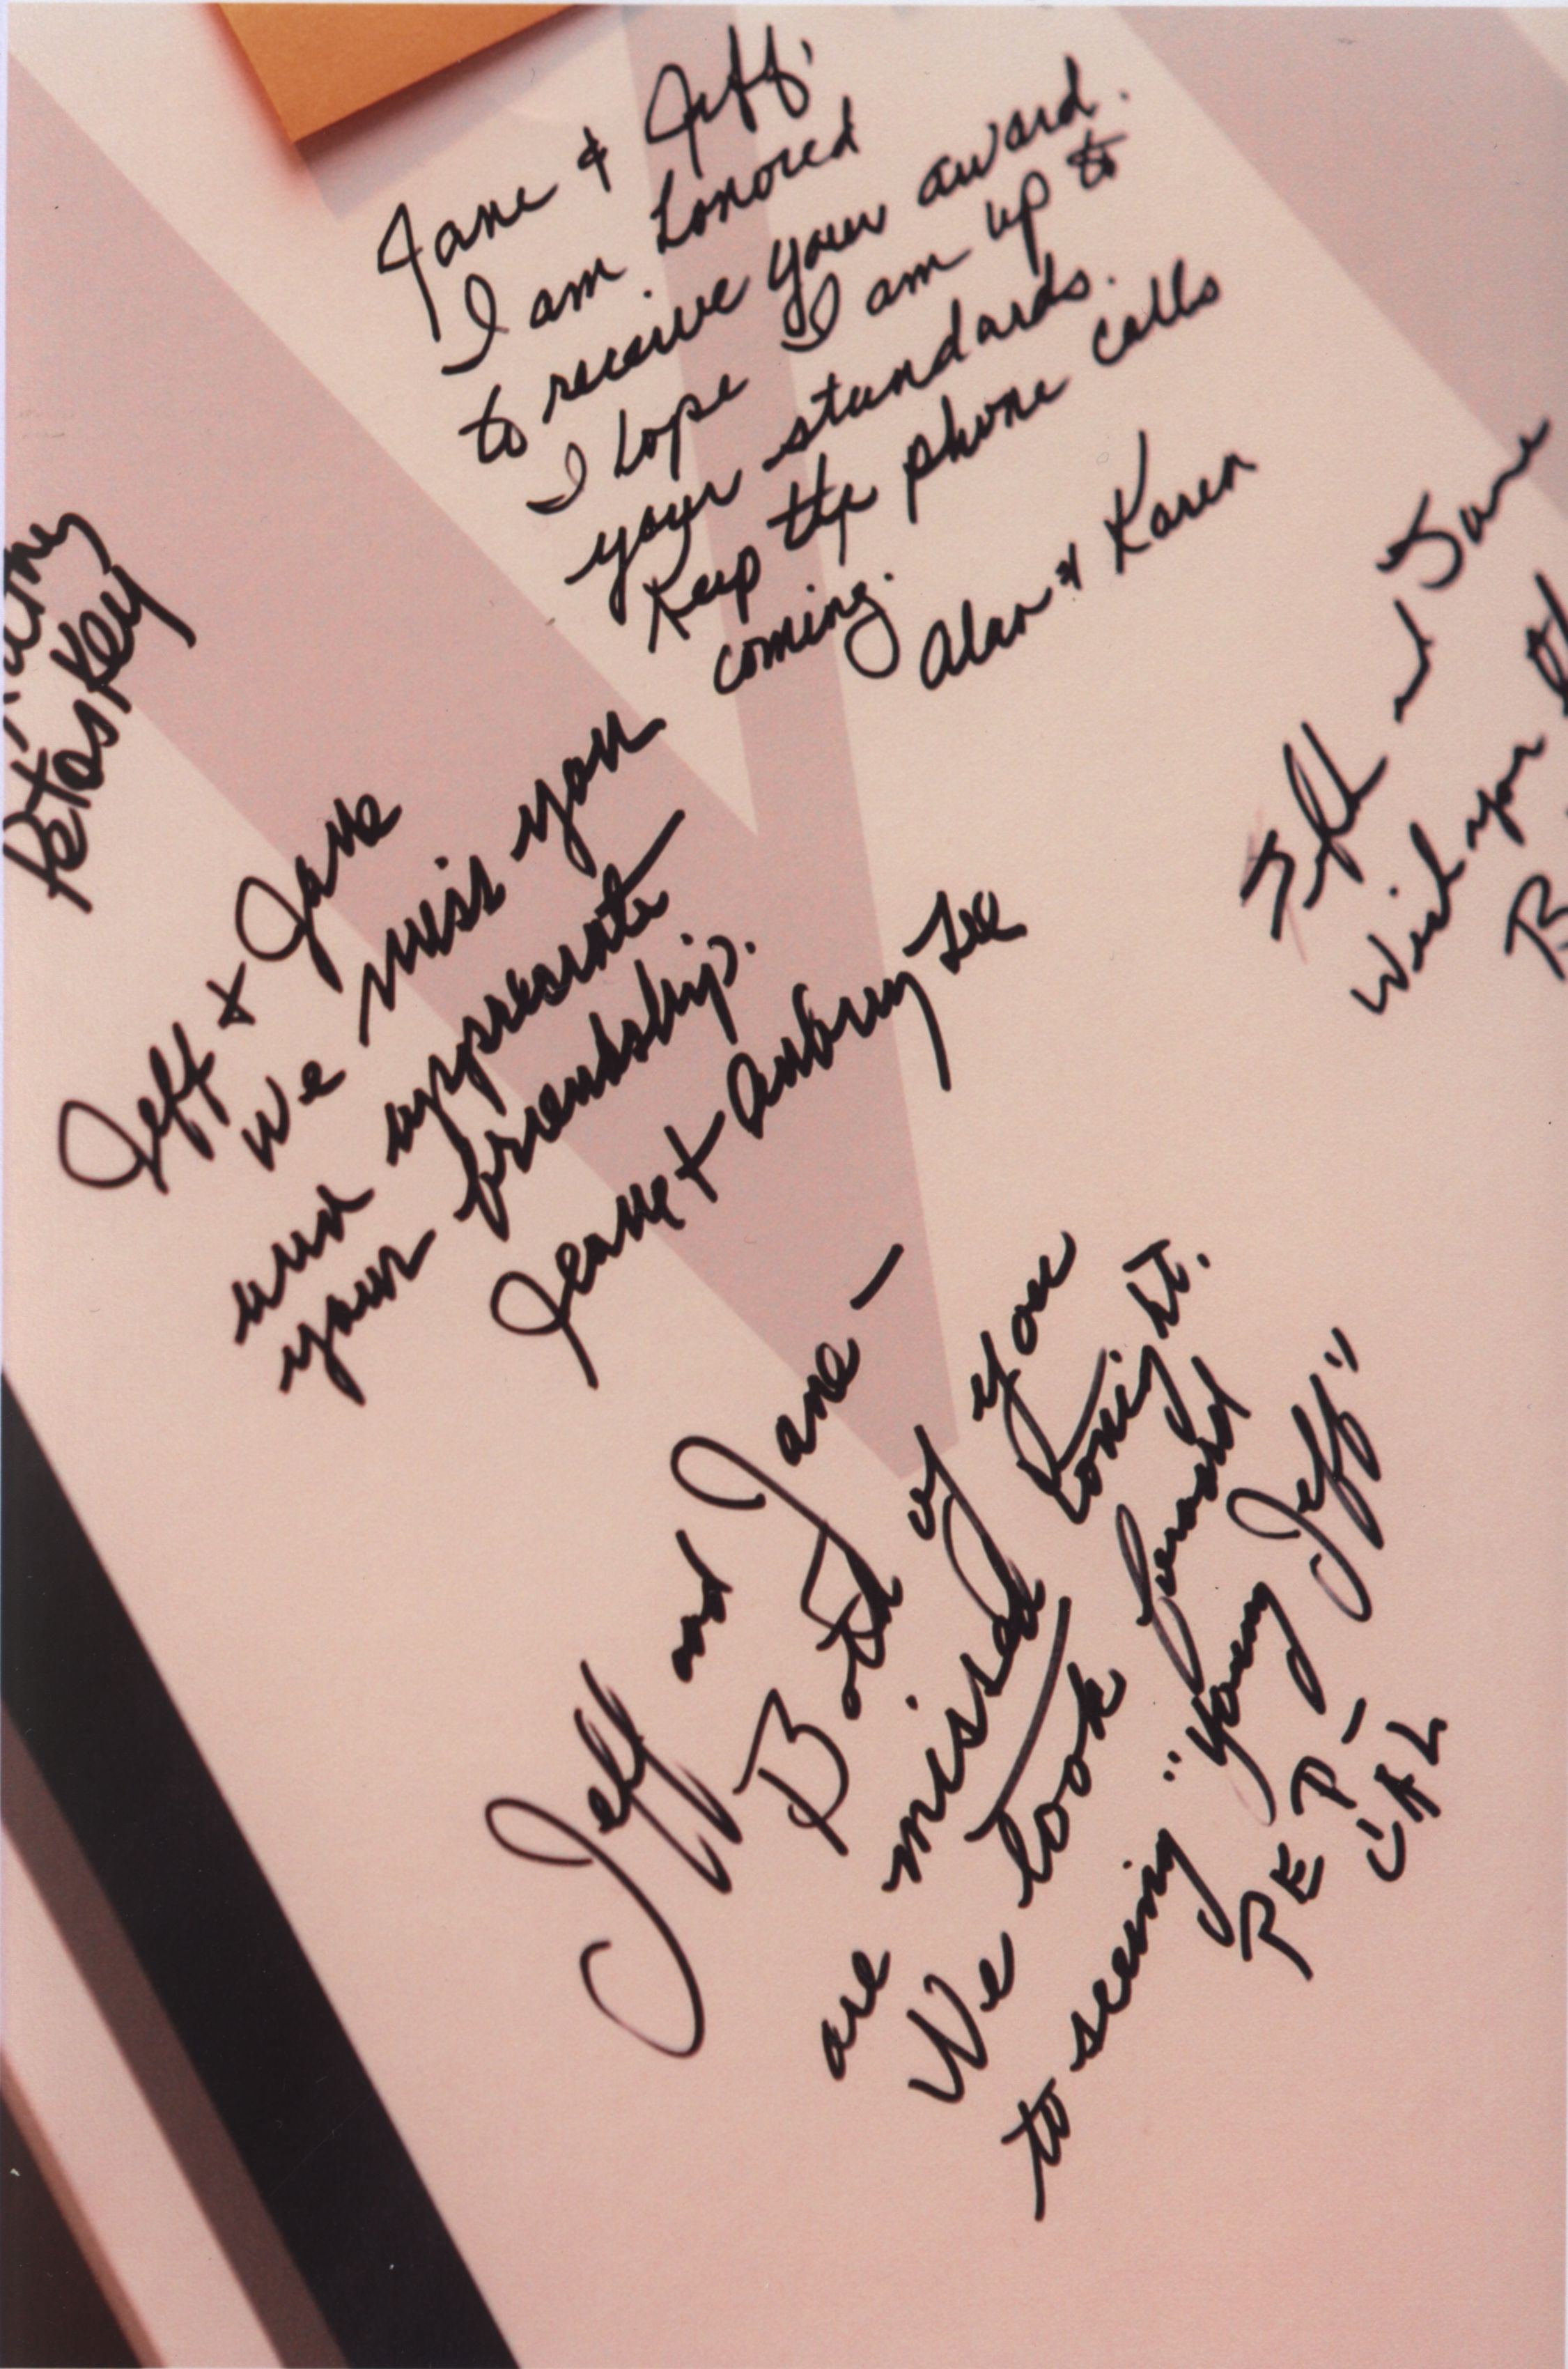 Jane & Jeff,
I am honored
to receive your award.
I hope I am up to
your standards.
Keep the phone calls
coming.
Alan & Karen
Petoskey
Jeff + Jane
We miss you
and appreciate
your friendship.
Jeanne + Aubrey Lee
Jeff and Jane
Wish you
Jeff and Jane —
Both of you
are missed tonight.
We look forward
to seeing "Young Jeff"
PEPCAL